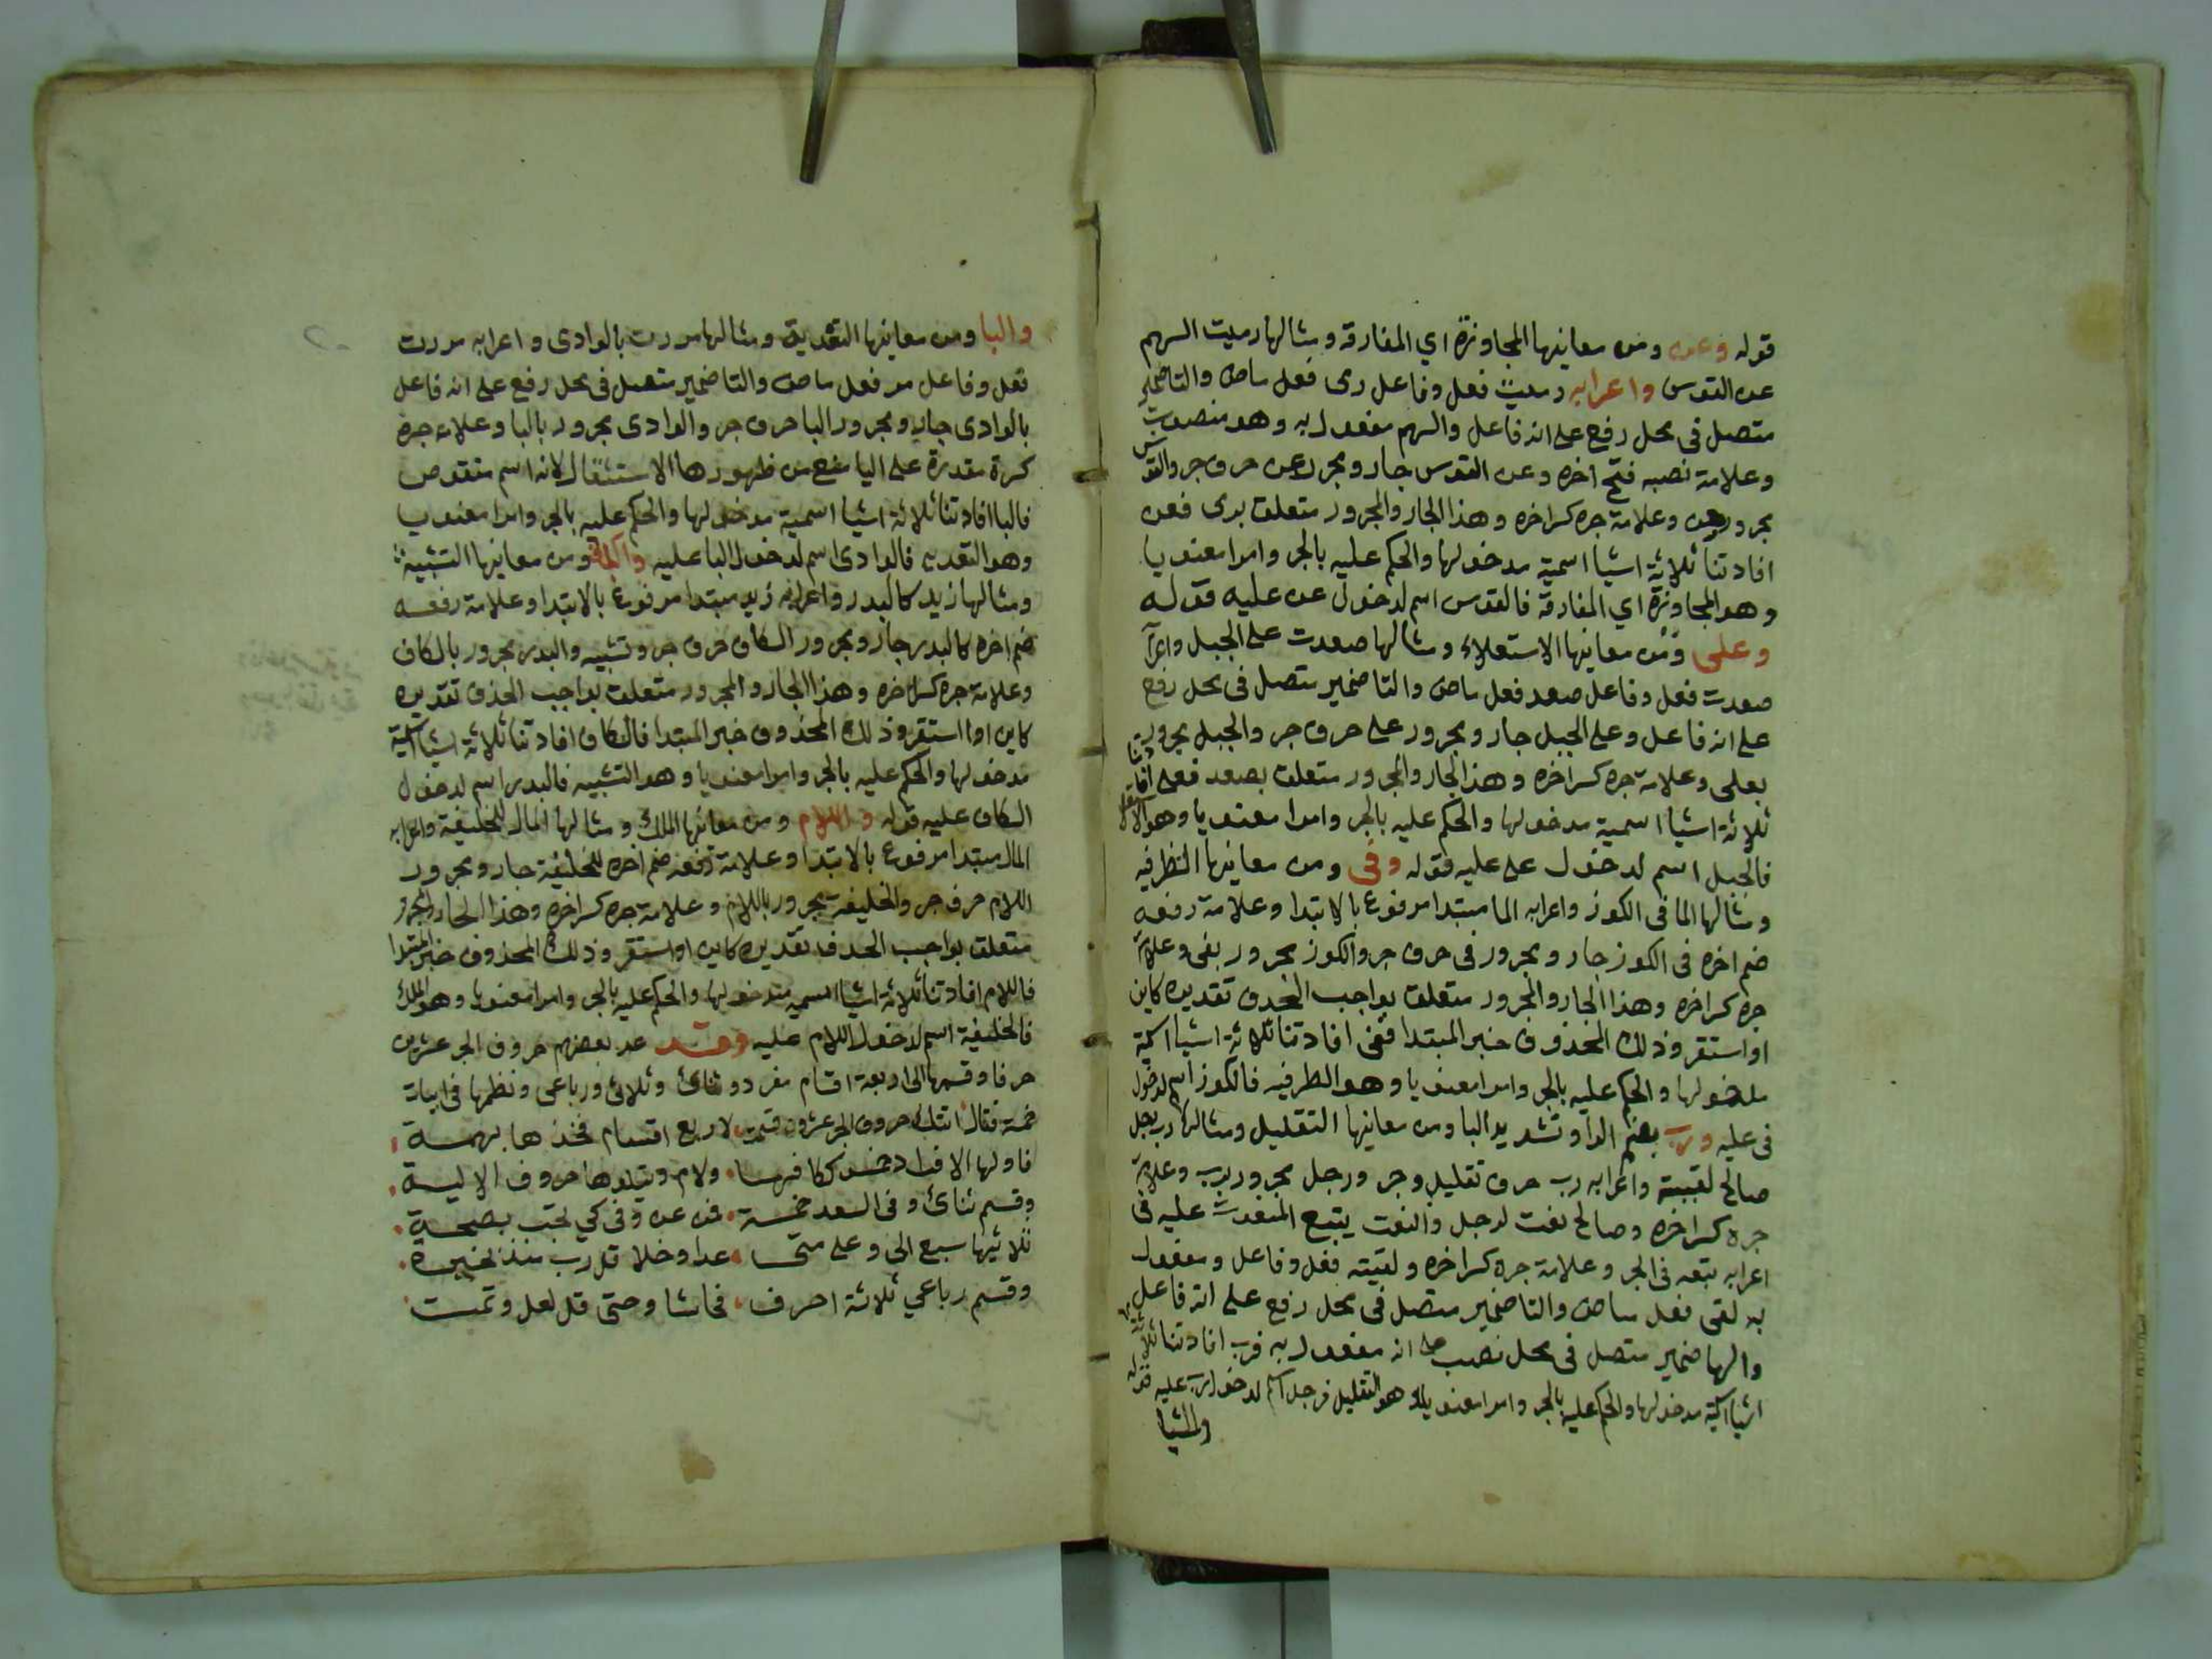 قوله وعن ومن معانيها المجاوزة اي المفارقة ومثالها رميت السهم
عن القوس واعرابه رميت فعل وفاعل رمى فعل ماض والتا ضمير
متصل فى محل رفع على انه فاعل والسهم مفعول به وهو منصوب
وعلامة نصبه فتح اخره وعن القوس جار ومجرور عن حرف جر والقوس
مجرور بعن وعلامة جره كسر اخره وهذا الجار والمجرور متعلق برمى فعن
افادتنا ثلاثة اشيا اسمية مدخولها والحكم عليه بالجر وامرا معنويا
وهو المجاوزة اي المفارقة فالقوس اسم لدخول عن عليه قوله
وعلى ومن معانيها الاستعلاء ومثالها صعدت على الجبل واعرا
صعدت فعل وفاعل صعد فعل ماض والتا ضمير متصل فى محل رفع
على انه فاعل وعلى الجبل جار ومجرور على حرف جر والجبل مجرور
بعلى وعلامة جره كسر اخره وهذا الجار والمجرور متعلق بصعد فعلى افادتنا
ثلاثة اشيا اسمية مدخولها والحكم عليه بالجر وامرا معنويا وهو الاستعلا
فالجبل اسم لدخول على عليه قوله وفى ومن معانيها الظرفيه
ومثالها الما فى الكوز واعرابه الما مبتدا مرفوع بالابتدا وعلامة رفعه
ضم اخره فى الكوز جار ومجرور فى حرف جر والكوز مجرور بفى وعلامة
جره كسر اخره وهذا الجار والمجرور متعلق بواجب الحذف تقديره كاين
او استقر وذلك المحذوف خبر المبتدا ففى افادتنا ثلاثة اشيا اسمية
مدخولها والحكم عليه بالجر وامرا معنويا وهو الظرفيه فالكوز اسم لدخول
فى عليه ورب بضم الرا وتشديد البا ومن معانيها التقليل ومثالها رب رجل
صالح لقيته واعرابه رب حرف تقليل وجر ورجل مجرور برب وعلامة
جره كسر اخره وصالح نعت لرجل والنعت يتبع المنعوت عليه فى
اعرابه تبعه فى الجر وعلامة جره كسر اخره ولقيته فعل وفاعل ومفعول
به لقى فعل ماض والتا ضمير متصل فى محل رفع على انه فاعل
والها ضمير متصل فى محل نصب على انه مفعول به فرب افادتنا ثلاثة
اشيا اسمية مدخولها والحكم عليه بالجر وامرا معنويا وهو التقليل فرجل اسم لدخول رب عليه قوله
والبا ومن معانيها التعدية ومثالها مررت بالوادى واعرابه مررت
فعل وفاعل مر فعل ماض والتا ضمير متصل فى محل رفع على انه فاعل
بالوادى جار ومجرور البا حرف جر والوادى مجرور بالبا وعلامة جره
كسرة مقدرة على اليا منع من ظهورها الاستثقال لانه اسم منقوص
فالبا افادتنا ثلاثة اشيا اسمية مدخولها والحكم عليه بالجر وامرا معنويا
وهو التعديه فالوادى اسم لدخول البا عليه والكاف ومن معانيها التشبيه
ومثالها زيد كالبدر واعرابه زيد مبتدا مرفوع بالابتدا وعلامة رفعه
ضم اخره كالبدر جار ومجرور الكاف حرف جر وتشبيه والبدر مجرور بالكاف
وعلامة جره كسر اخره وهذا الجار والمجرور متعلق بواجب الحذف تقديره
كاين او استقر وذلك المحذوف خبر المبتدا فالكاف افادتنا ثلاثة اشيا اسمية
مدخولها والحكم عليه بالجر وامرا معنويا وهو التشبيه فالبدر اسم لدخول
الكاف عليه قوله واللام ومن معانيها الملك ومثالها المال للخليفة واعرابه
المال مبتدا مرفوع بالابتدا وعلامة رفعه ضم اخره للخليفة جار ومجرور
اللام حرف جر والخليفة مجرور باللام وعلامة جره كسر اخره وهذا الجار والمجرور
متعلق بواجب الحذف تقديره كاين او استقر وذلك المحذوف خبر المبتدا
فاللام افادتنا ثلاثة اشيا اسمية مدخولها والحكم عليه بالجر وامرا معنويا وهو الملك
فالخليفة اسم لدخول اللام عليه وقد عد بعضهم حروف الجر عشرين
حرفا وقسمها الى اربعة اقسام مفرد وثنائى وثلاثى ورباعى ونظمها فى ابيات
خمسة فقال اتتك حروف الجر عشرون قسمت لاربع اقسام فخذها بهمة
فاولها الافراد خمس ككافها ولام ويتلوها حروف الالية
وقسم ثنائى وفى العد خمسة فمن عن وفى كي تجب بصحة
ثلاثيها سبع الى وعلى متى عدا وخلا قل رب منذ لخيرة
وقسم رباعي ثلاثة احرف فحاشا وحتى قل لعل وتمت